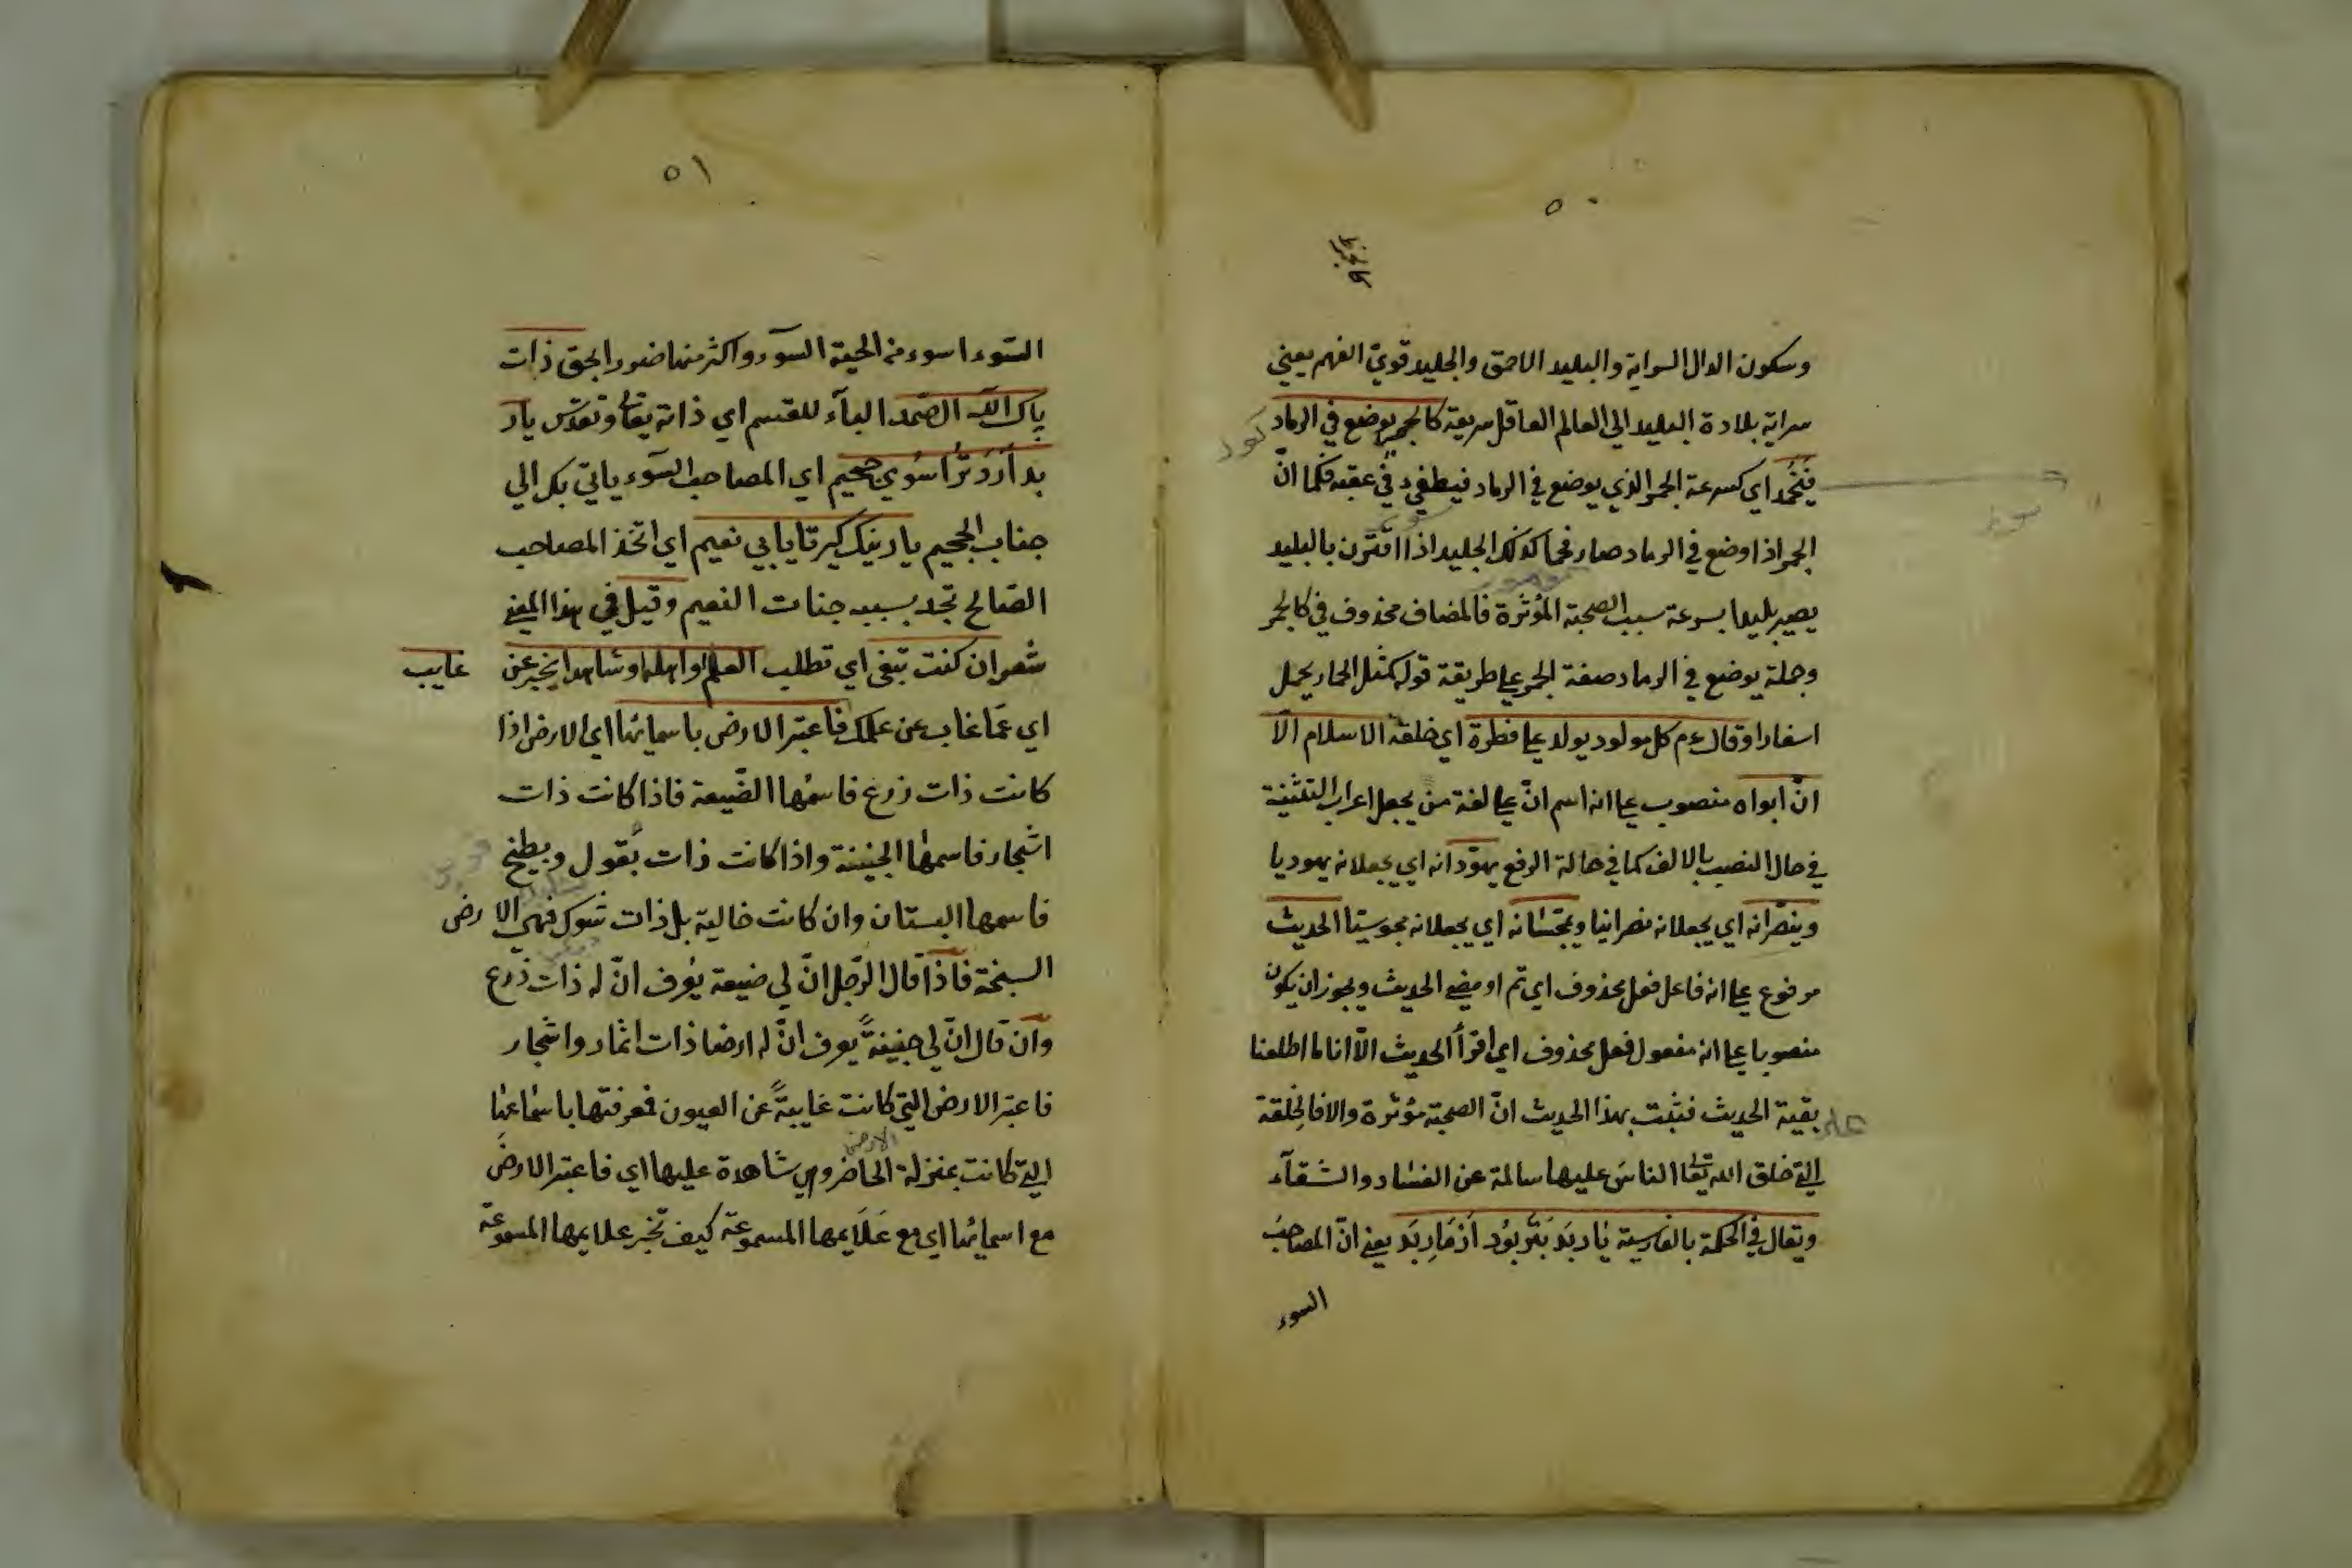 ٥٠
وسكون الدال السراية والبليد الاحمق والجليد قويّ الفهم يعني
سراية بلادة البليد الى العالم العاقل سريعة كالجمر يوضع في الرماد
فَيَخْمُد اي كسرعة الجمر الذي يوضع في الرماد فينطفئ في عقبه فكما انّ
الجمر اذا وضع في الرماد صار فحما كذلك الجليد اذا اقترن بالبليد
يصير بليدا بسرعة بسبب الصحبة المؤثرة فالمضاف محذوف في كالجمر
وجملة يوضع في الرماد صفة الجمر على طريقة قوله كمثل الحمار يحمل
اسفارا وقال ع م كل مولود يولد على فطرة اي خلقة الاسلام الّا
انّ ابواه منصوب على انه اسم انّ على لغة من يجعل اعراب التثنية
في حال النصب بالالف كما في حالة الرفع يهوّدانه اي يجعلانه يهوديا
وينصّرانه اي يجعلانه نصرانيا ويمجّسانه اي يجعلانه مجوسيّا الحديث
مرفوع على انه فاعل فعل محذوف اي تم او مضى الحديث ويجوز ان يكون
منصوبا على انه مفعول فعل محذوف اي اقرأ الحديث الّا انا ما اطلعنا
بقية الحديث فثبت بهذا الحديث انّ الصحبة مؤثرة والا فالخلقة
التي خلق الله تعالى الناس عليها سالمة عن الفساد والشقآء
ويقال في الحكمة بالفارسية يٰار بَد بَتَر بوُد اَز مَارِ بَد يعني انّ المصاحب
السوء
٥١
السّوء اسوء من الحية السوء واكثر منها ضررا بحق ذات
پاك الله الصّمد البآء للقسم اي ذاته تعالى وتقدّس يار
بد اَرَد تُرا سُوي جحيم اي المصاحب السّوء ياتي بك الى
جناب الجحيم يار نيك كير تا يابي نعيم اي اتّخذ المصاحب
الصّالح تجد بسببه جنات النعيم وقيل في هذا المعنى
شعر ان كنت تبغى اي تطلب العلم او اهله او شاهدا يخبر عن غايب
اي عمّا غاب عن علمك فاعتبر الارض باسمائها اي الارض اذا
كانت ذات زرع فاسمُها الضّيعة فاذا كانت ذات
اشجار فاسمها الجنينة واذا كانت ذات بُقول وبطيخ
فاسمها البستان وان كانت خالية بل ذات شوك فهي الارض
السبخة فاذا قال الرّجل انّ لي ضيعة يُعرف انّ له ذات زرع
وان قال انّ لي جنينةً يعرف انّ له ارضا ذات اثمار واشجار
فاعتبر الارض التي كانت غايبةً عن العيون فعرفتها باسمائها
التي كانت بمنزلة الحاضر وهي شاهدة عليها اي فاعتبر الارض
مع اسمائها اي مع عَلَايمها المسموعة كيف تخبر علايمها المسموعة